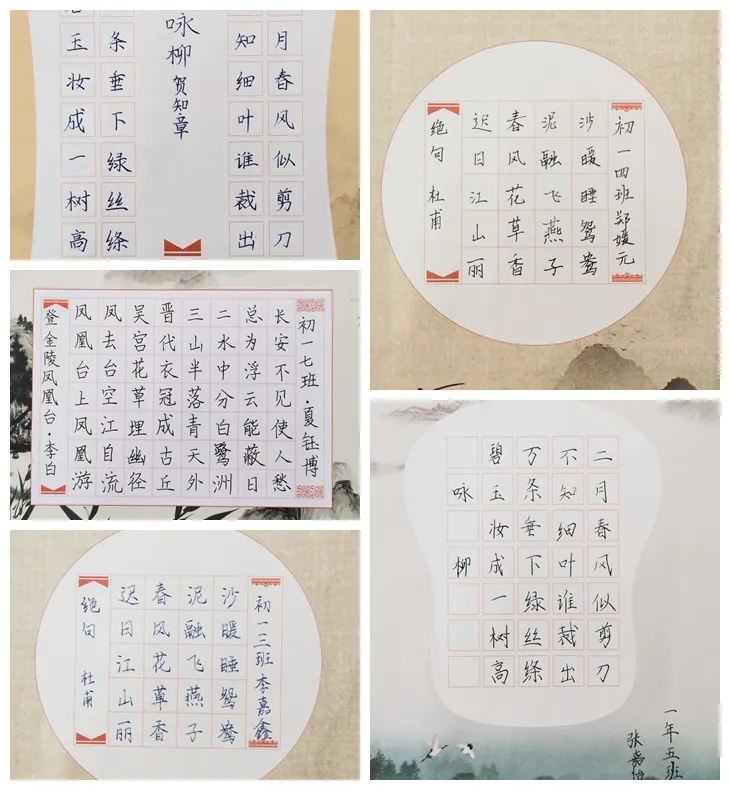 玉妆成一树高
条垂下绿丝绦
咏柳 贺知章
知细叶谁裁出
月春风似剪刀
绝句 杜甫
迟日江山丽
春风花草香
泥融飞燕子
沙暖睡鸳鸯
初一四班郑媛元
登金陵凤凰台·李白
凤凰台上凤凰游
凤去台空江自流
吴宫花草埋幽径
晋代衣冠成古丘
三山半落青天外
二水中分白鹭洲
总为浮云能蔽日
长安不见使人愁
初一七班·夏钰博
绝句 杜甫
迟日江山丽
春风花草香
泥融飞燕子
沙暖睡鸳鸯
初一三班李嘉鑫
咏柳
碧玉妆成一树高
万条垂下绿丝绦
不知细叶谁裁出
二月春风似剪刀
一年五班
张嘉